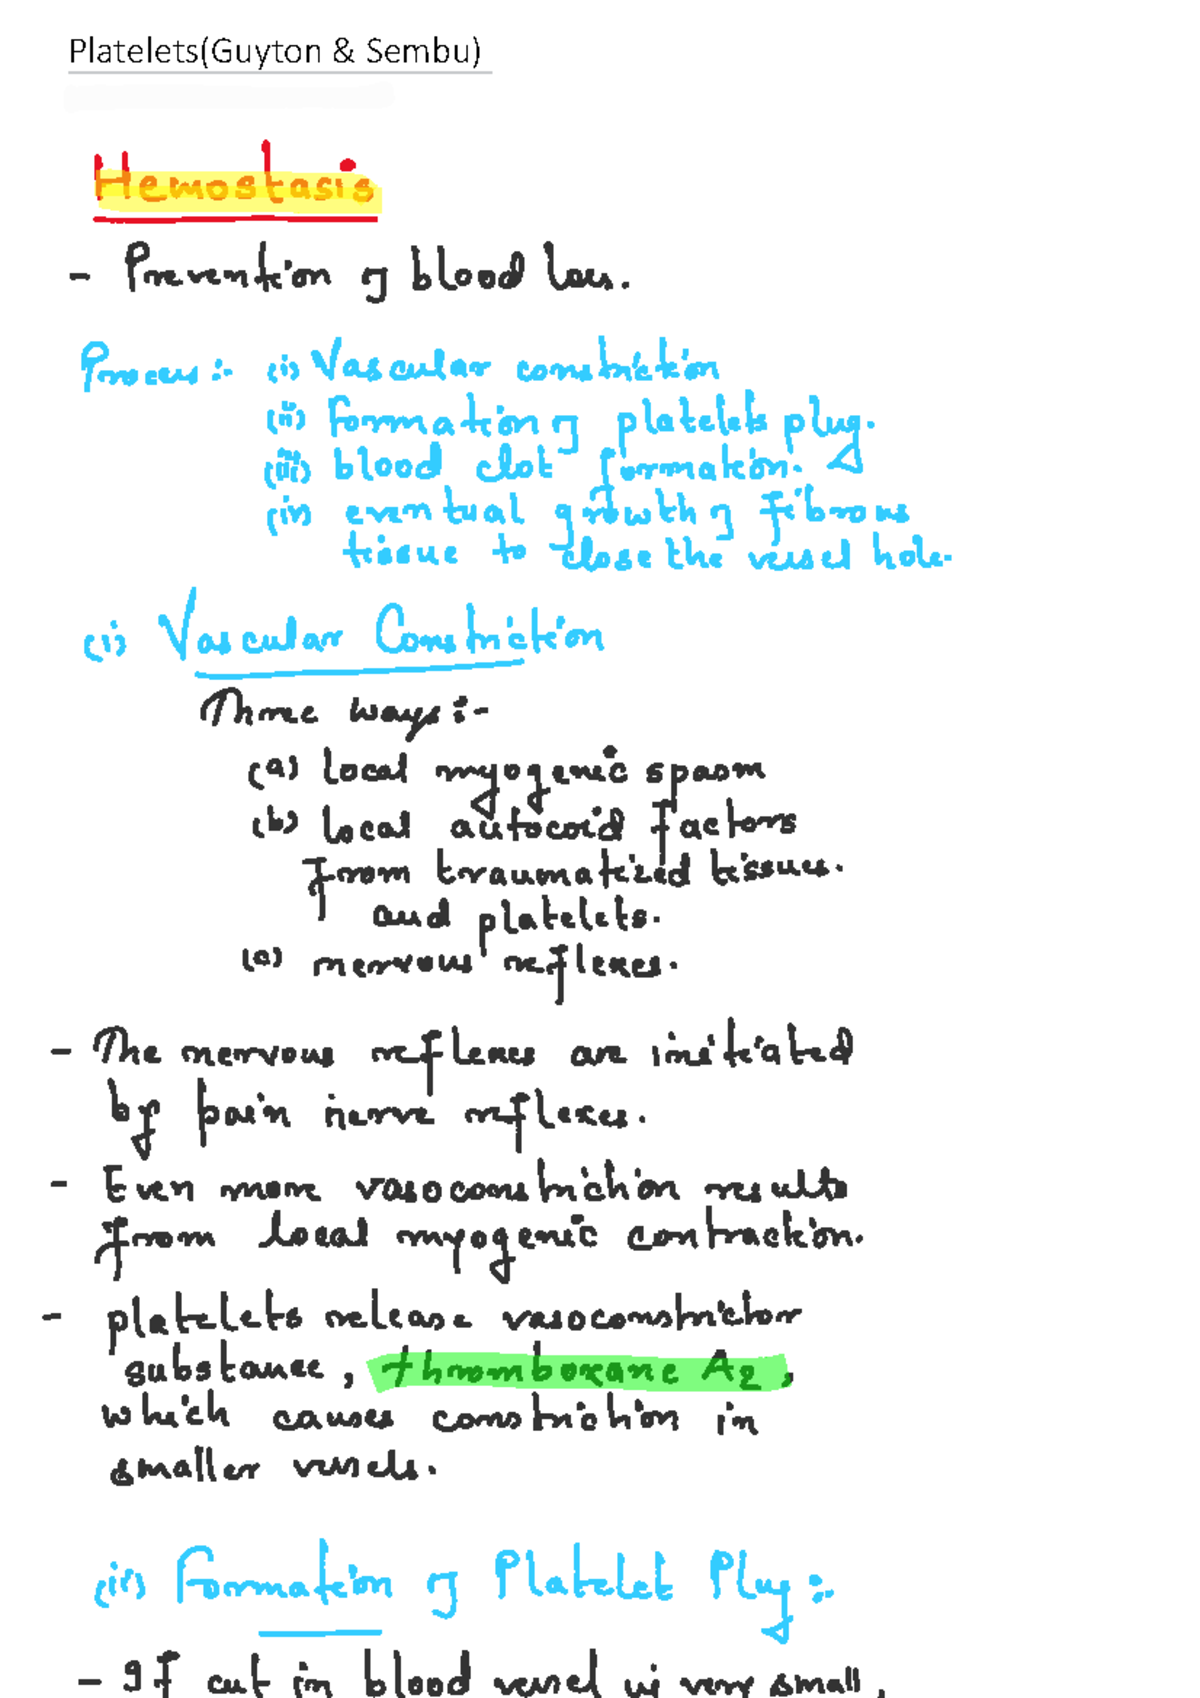 Platelets(Guyton & Sembu)
Hemostasis
- Prevention of blood loss.
Process :- (i) Vascular constriction
(ii) Formation of platelets plug.
(iii) blood clot formation.
(iv) eventual growth of fibrous
tissue to close the vessel hole.
(i) Vascular Constriction
Three ways :-
(a) local myogenic spasm
(b) local autocoid factors
from traumatized tissues.
and platelets.
(c) nervous reflexes.
- The nervous reflexes are initiated
by pain nerve reflexes.
- Even more vasoconstriction results
from local myogenic contraction.
- platelets release vasoconstrictor
substance, thromboxane A2,
which causes constriction in
smaller vessels.
(ii) Formation of Platelet Plug :-
- If cut in blood vessel is very small,